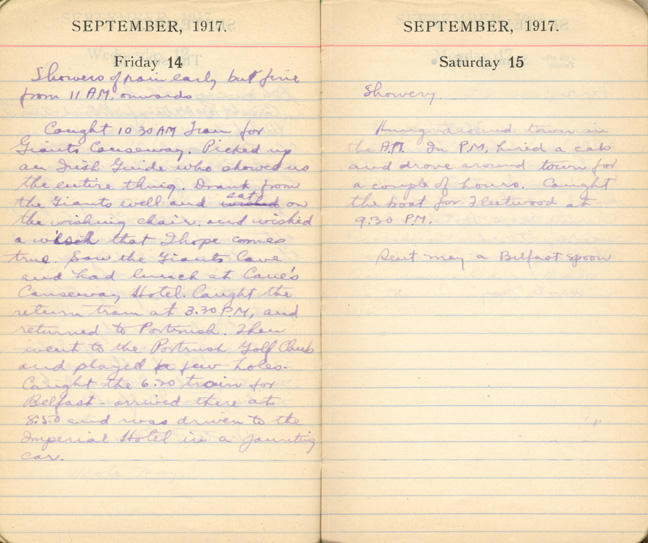 SEPTEMBER, 1917.
Friday 14
Showers of rain early but fine
from 11 A.M. onwards
Caught 10.30 AM Train for
Giants Causeway. Picked up
an Irish Guide who showed us
the entire thing. Drank from
the Giants well and wished sat on
the wishing chair, and wished
a wish that I hope comes
true. Saw the Giants Cave
and had lunch at Cane's
Causeway Hotel. Caught the
return tram at 3.30 P.M, and
returned to Portrush. Then
went to the Portrush Golf Club
and played a few holes.
Caught the 6.20 train for
Belfast - arrived there at
8:50 and was driven to the
Imperial Hotel in a jaunting
car.
SEPTEMBER, 1917.
Saturday 15
Showery.
Hung around town in
the A.M. In P.M. hired a cab
and drove around town for
a couple of hours. Caught
the boat for Fleetwood at
9.30 P.M.
Sent may a Belfast spoon